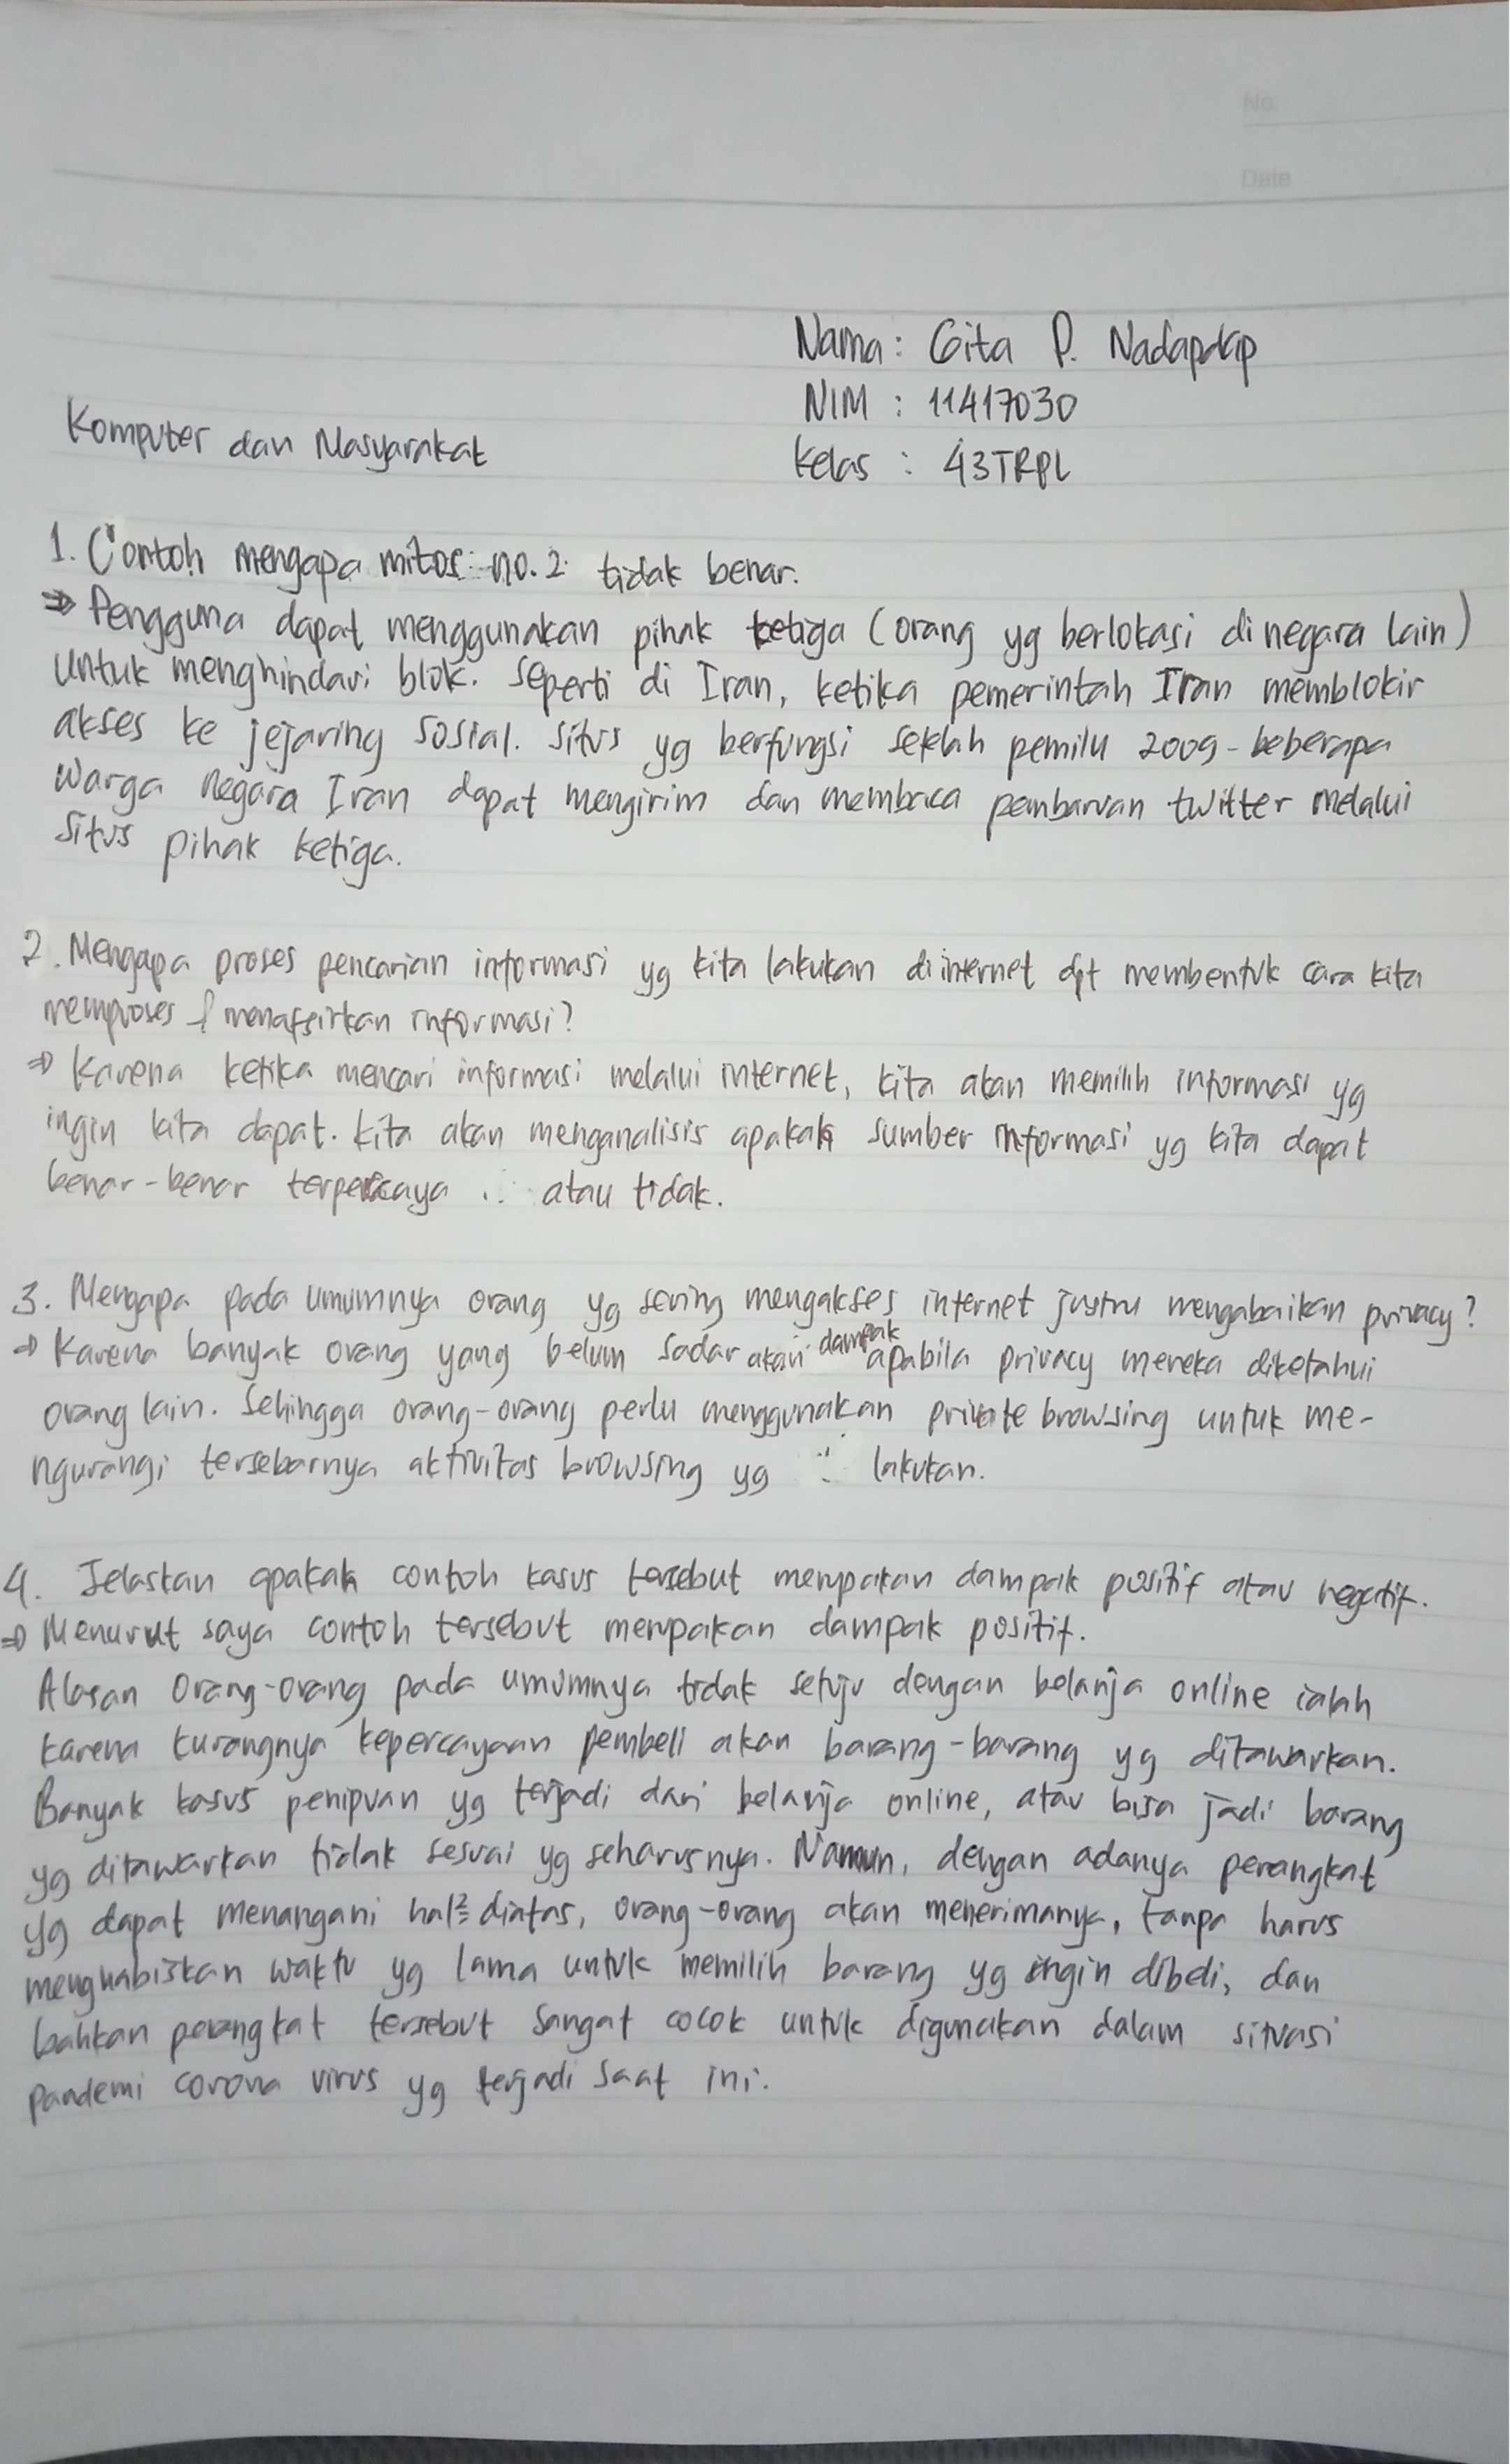 No.
Date
Nama : Gita P. Nadapdap
NIM : 11417030
Komputer dan Masyarakat
Kelas : 43TRPL
1. Contoh mengapa mitos no. 2 tidak benar.
⇒ Pengguna dapat menggunakan pihak ketiga (orang yg berlokasi di negara lain)
untuk menghindari blok. Seperti di Iran, ketika pemerintah Iran memblokir
akses ke jejaring sosial. Situs yg berfungsi setelah pemilu 2009 - beberapa
warga negara Iran dapat mengirim dan membaca pembaruan twitter melalui
situs pihak ketiga.
2. Mengapa proses pencarian informasi yg kita lakukan di internet dpt membentuk cara kita
memproses & menafsirkan informasi?
⇒ Karena ketika mencari informasi melalui internet, kita akan memilih informasi yg
ingin kita dapat. Kita akan menganalisis apakah sumber informasi yg kita dapat
benar-benar terpercaya atau tidak.
3. Mengapa pada umumnya orang yg sering mengakses internet justru mengabaikan privacy?
⇒ Karena banyak orang yang belum sadar akan dampak apabila privacy mereka diketahui
orang lain. Sehingga orang-orang perlu menggunakan private browsing untuk me-
ngurangi tersebarnya aktivitas browsing yg lakukan.
4. Jelaskan apakah contoh kasus tersebut merupakan dampak positif atau negatif.
⇒ Menurut saya contoh tersebut merupakan dampak positif.
Alasan orang-orang pada umumnya tidak setuju dengan belanja online ialah
karena kurangnya kepercayaan pembeli akan barang-barang yg ditawarkan.
Banyak kasus penipuan yg terjadi dari belanja online, atau bisa jadi barang
yg ditawarkan tidak sesuai yg seharusnya. Namun, dengan adanya perangkat
yg dapat menangani hal² diatas, orang-orang akan menerimanya, tanpa harus
menghabiskan waktu yg lama untuk memilih barang yg ingin dibeli, dan
bahkan perangkat tersebut sangat cocok untuk digunakan dalam situasi
pandemi corona virus yg terjadi saat ini.